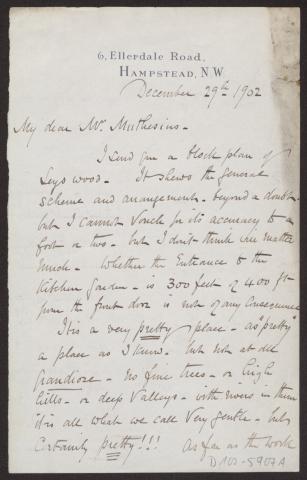 6, Ellerdale Road,
HAMPSTEAD, N.W.
December 29th 1902
My dear Mr. Muthesius -
I send you a block plan of
Leyswood - It shews the general
scheme and arrangements - beyond a doubt -
but I cannot vouch for its accuracy to a
foot or two - but I don't think we matter
much - Whether the Entrance to the
Kitchen Garden - is 300 feet or 400 ft
from the front door is not of any consequence
It is a very pretty place - as "pretty"
a place as I know - but not at all
Grandiose - No fine trees - or high
hills - or deep valleys - with rivers in them
it is all what we call very gentle - but
certainly pretty!!! As far as the work
D 102-5907A